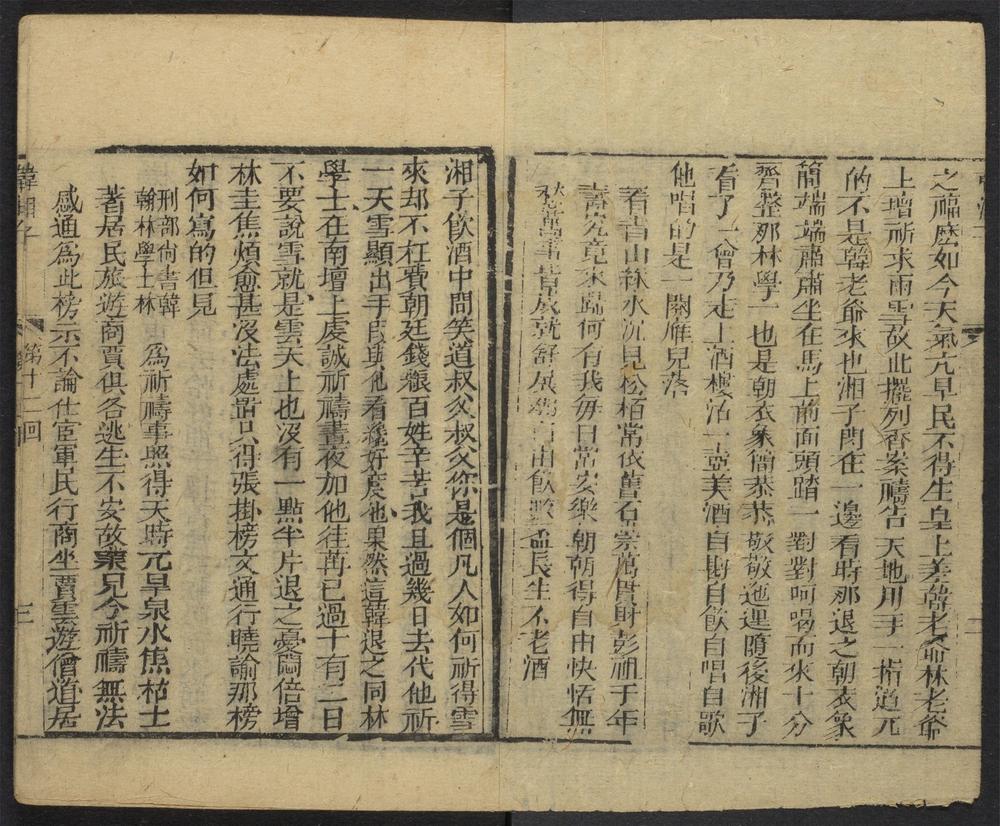 之福麽如今天氣亢旱民不得生皇上差韓老爺林老爺
上壇祈求雨雪故此擺列香案禱告天地用手一指道兀
的不是韓老爺來也湘子閃在一邊看時那退之朝衣象
簡端端肅肅坐在馬上前面頭踏一對對呵喝而來十分
齊整那林學士也是朝衣象簡恭恭敬敬迤逦隨後湘子
看了一會乃走上酒樓沽一壺美酒自斟自飲自唱自歌
他唱的是一闋雁兒落
看青山綠水沉見松栢常依舊石崇萬貫財彭祖千年
壽究竟來歸何有我每日常安樂朝朝得自由快恬無
愁萬事皆成就舒展 由飲數盃長生不老酒
湘子飲酒中間笑道叔父叔父你是個凡人如何祈得雪
來却不枉費朝廷錢糧百姓辛苦我且過幾日去代他祈
一天雪顯出手段與他看纔好度他果然這韓退之同林
學士在南壇上虔誠祈禱晝夜加他往再已過十有二日
不要說雪就是雲天上也沒有一點半片退之憂悶倍增
林圭焦煩愈甚沒法處置只得張掛榜文通行曉諭那榜
如何寫的但見
刑部尚書韓
翰林學士林
爲祈禱事照得天時亢旱泉水焦枯士
著居民旅遊商賈俱各逃生不安故稟兄今祈禱無法
感通爲此榜示不論仕宦軍民行商坐賈雲遊僧道居
韓湘子
第十二回
三
二